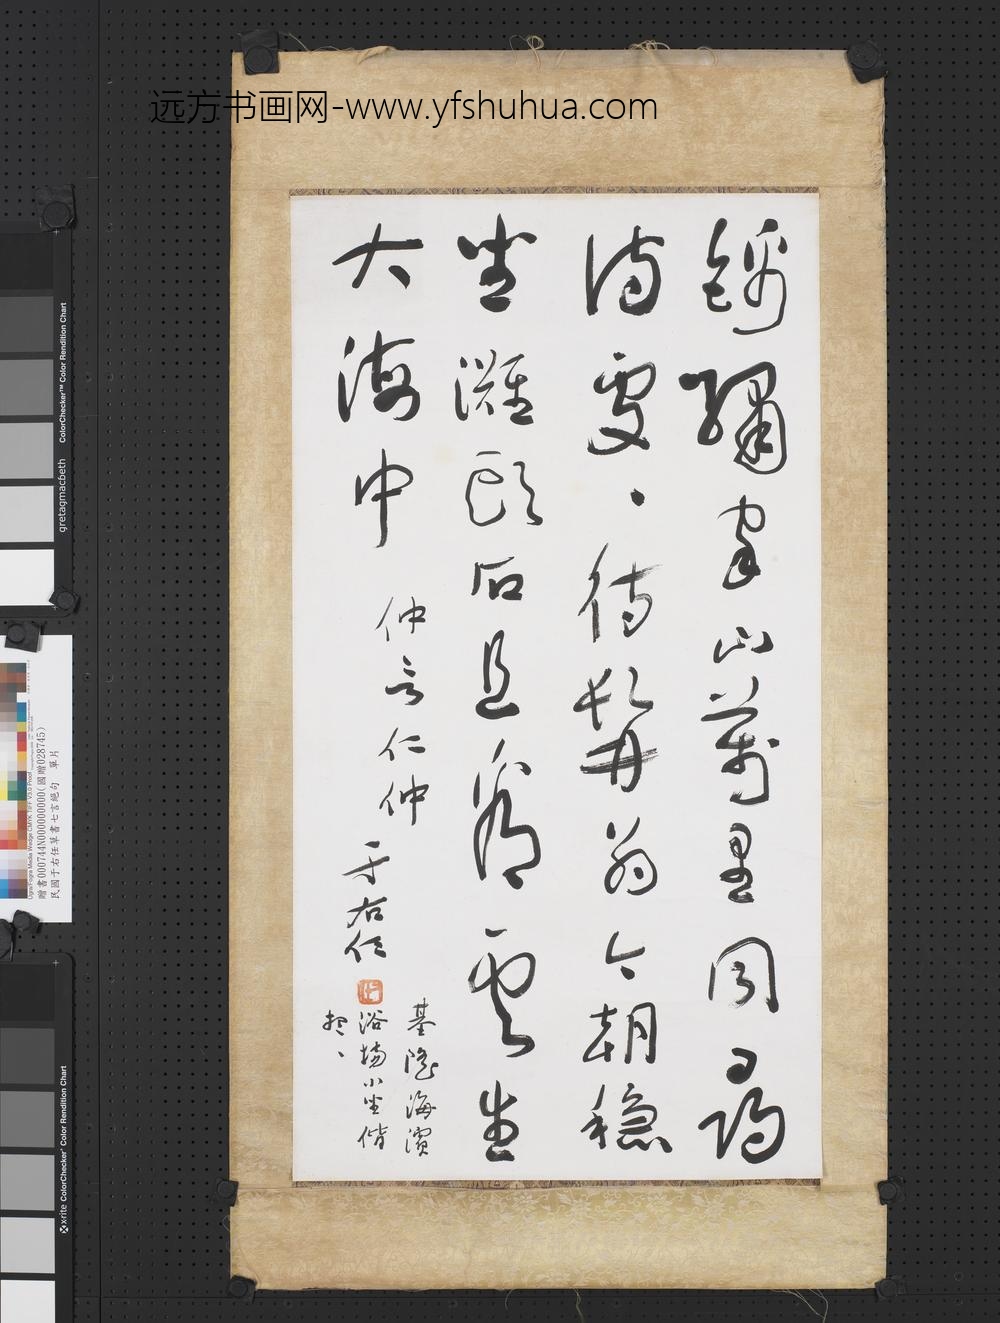 远方书画网-www.yfshuhua.com
錦繡家山萬里同尋
詩處、待髯翁今朝穩
坐灘頭石且看雲生
大海中
仲言仁仲
于右任
基隆海濱
浴場小坐偕
gretagmacbeth ColorChecker™ Color Rendition Chart
贈書000744N000000000(國贈028745)
民國于右任草書七言絕句 單片
x-rite ColorChecker® Color Rendition Chart